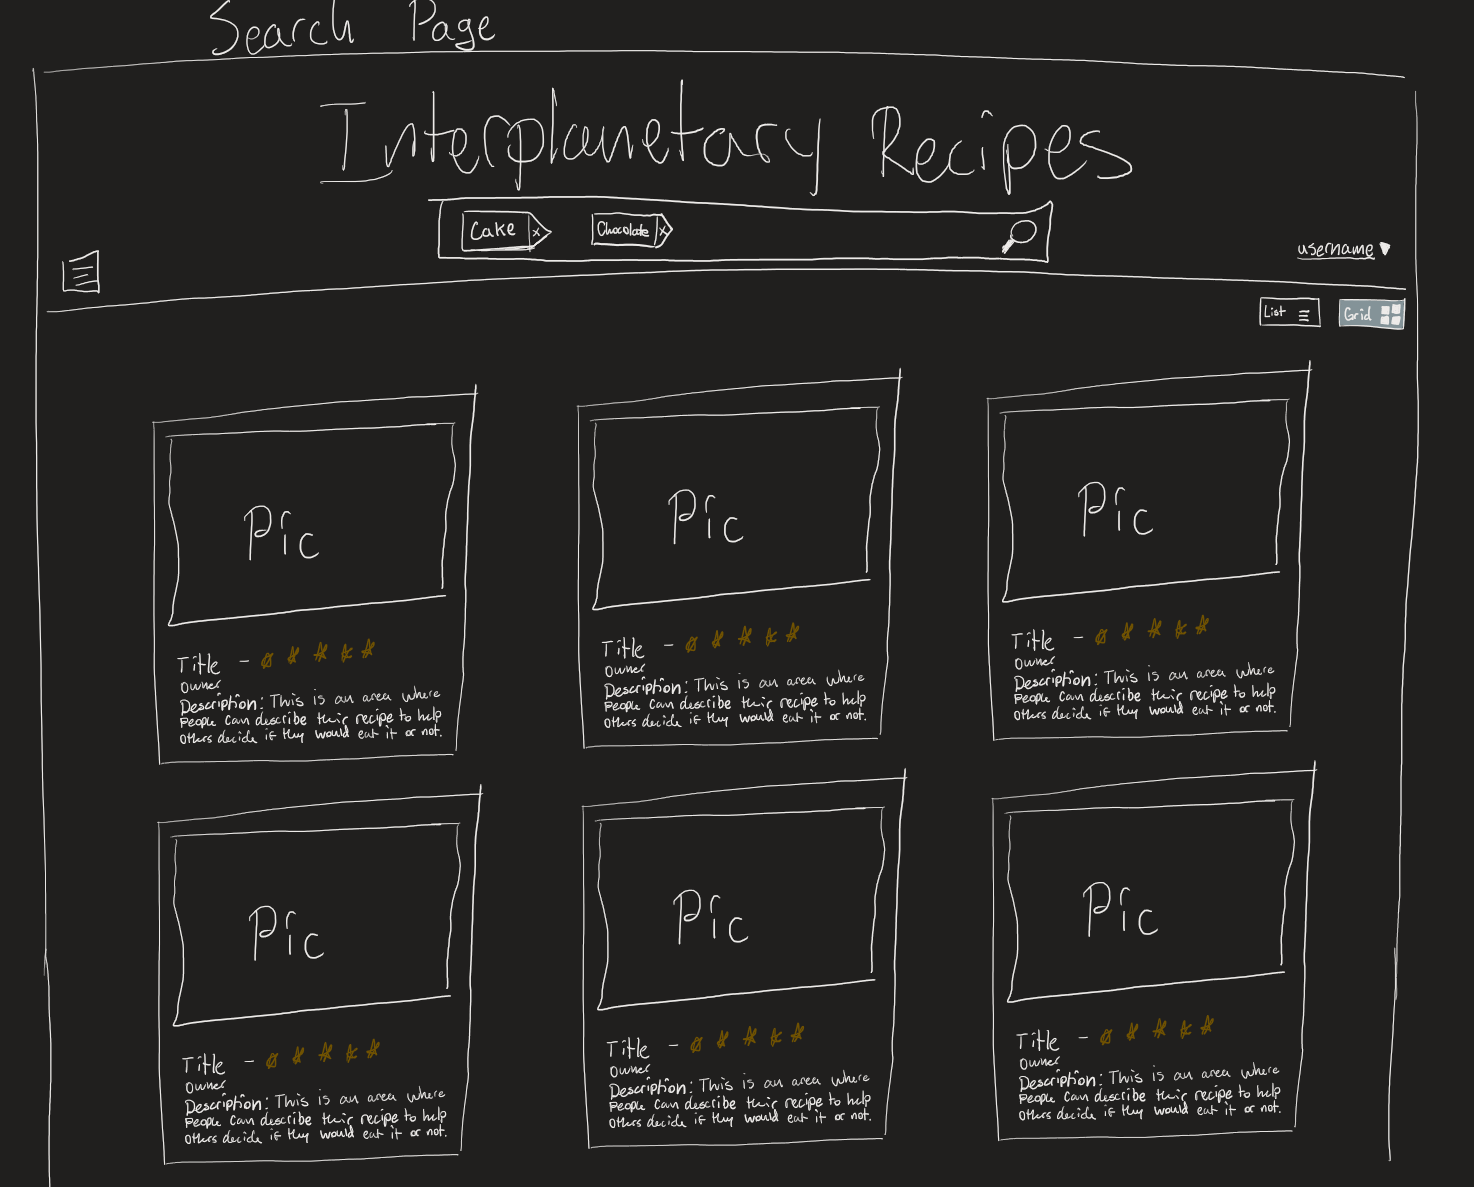 Search Page
Interplanetary Recipes
Cake x Chocolate x
username
List Grid
Pic
Title -
Owner
Description: This is an area where
People can describe their recipe to help
Others decide if they would eat it or not.
Pic
Title -
Owner
Description: This is an area where
People can describe their recipe to help
Others decide if they would eat it or not.
Pic
Title -
Owner
Description: This is an area where
People can describe their recipe to help
Others decide if they would eat it or not.
Pic
Title -
Owner
Description: This is an area where
People can describe their recipe to help
Others decide if they would eat it or not.
Pic
Title -
Owner
Description: This is an area where
People can describe their recipe to help
Others decide if they would eat it or not.
Pic
Title -
Owner
Description: This is an area where
People can describe their recipe to help
Others decide if they would eat it or not.